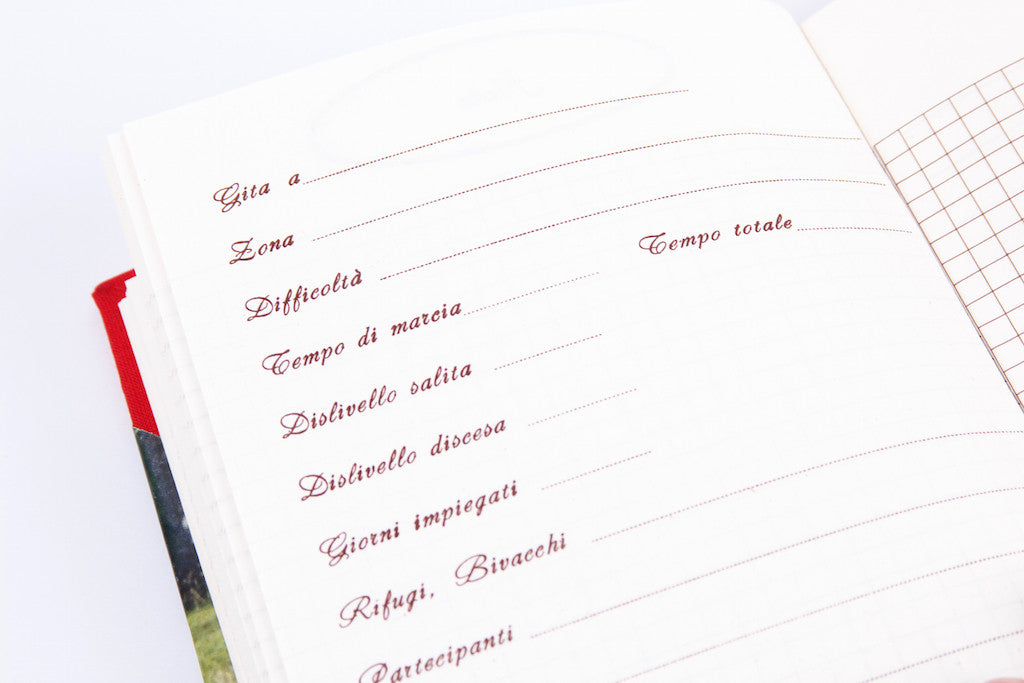 Gita a
Zona
Difficoltà
Tempo di marcia Tempo totale
Dislivello salita
Dislivello discesa
Giorni impiegati
Rifugi, Bivacchi
Partecipanti